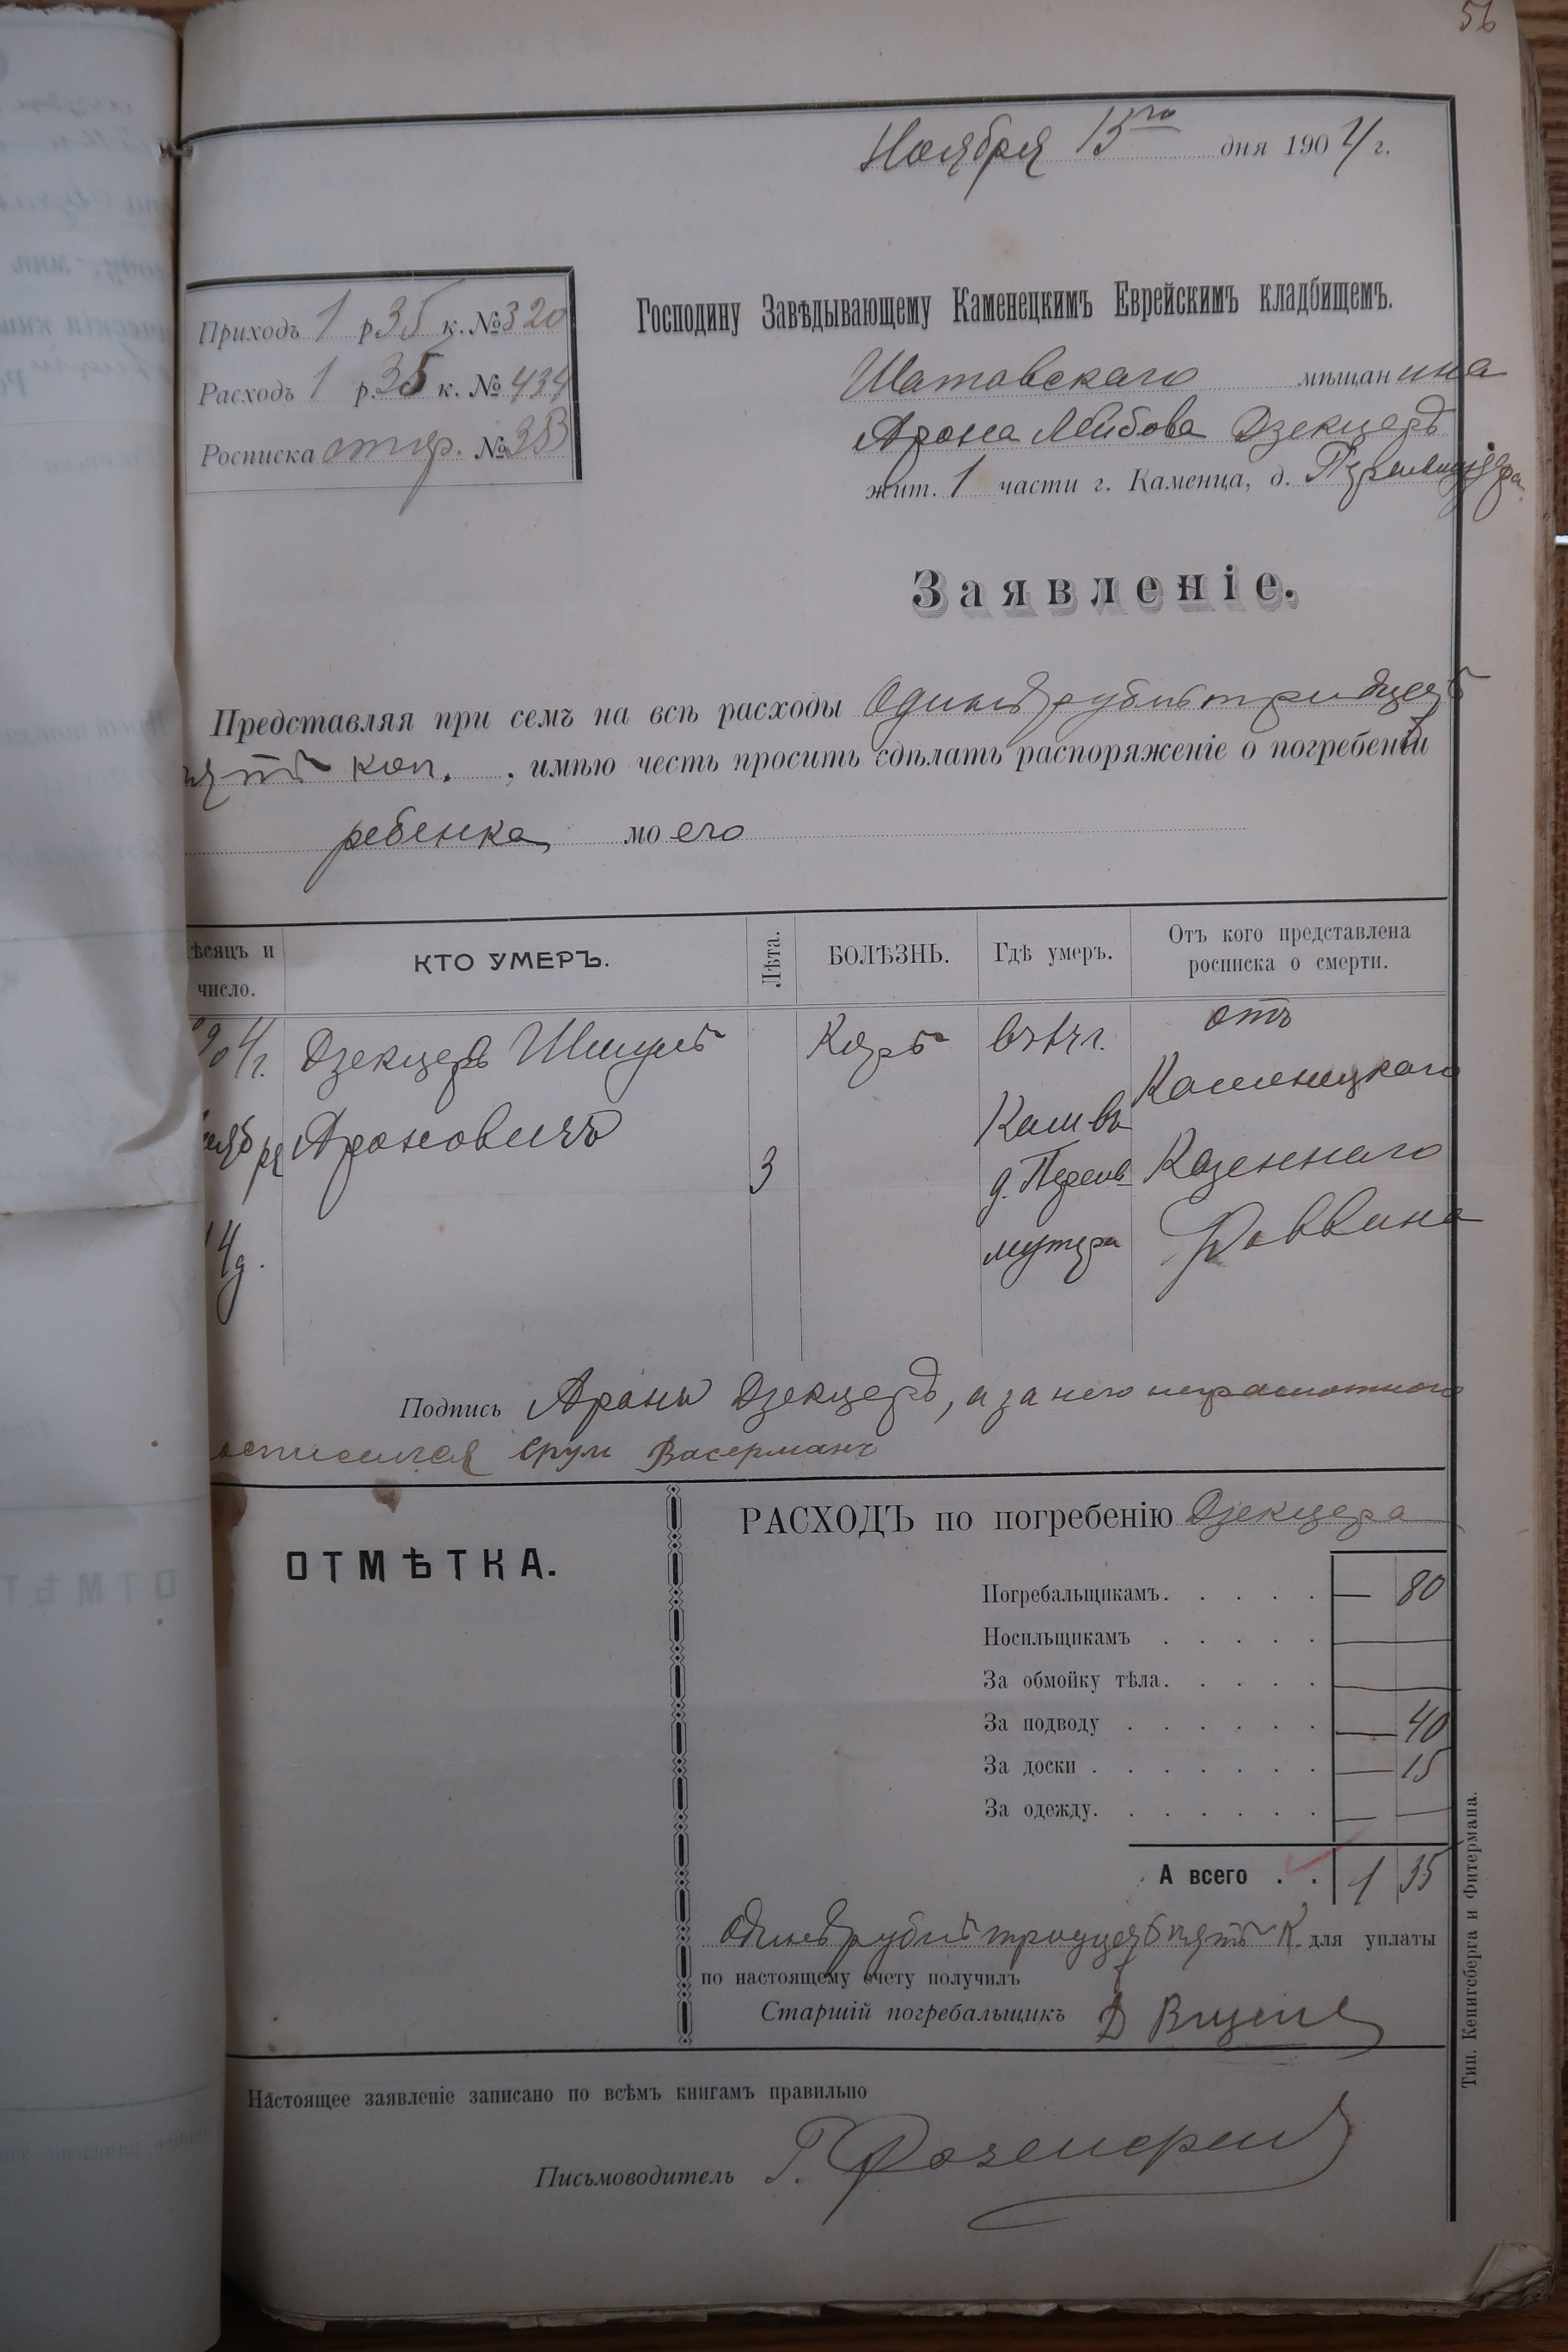 56
Ноября 15го дня 1904 г.
Приходъ 1 р. 35 к. № 320
Расходъ 1 р. 35 к. № 434
Росписка отпр. № 383
Господину Завѣдывающему Каменецкимъ Еврейскимъ кладбищемъ.
Шатавскаго мѣщанина
Арона Лейбова Дзекцеръ
жит. 1 части г. Каменца, д.
Заявленіе.
Представляя при семъ на всѣ расходы Одинъ рубль тридцать
пять коп. , имѣю честь просить сдѣлать распоряженіе о погребеніи
ребенка моего
ѣсяцъ и число.
КТО УМЕРЪ.
Лѣта.
БОЛѢЗНЬ.
Гдѣ умеръ.
Отъ кого представлена росписка о смерти.
Дзекцеръ Шмуль
Ароновичъ
3
Корь
въ 1 ч. г.
Кам въ
д. Перель
мутера
отъ
Каменецкаго
Казеннаго
Раввина
Подпись Аронъ Дзекцеръ, а за него неграмотного
осписался Срул Васерманъ
ОТМѢТКА.
РАСХОДЪ по погребенію Дзекцера
Погребальщикамъ. . . . . — 80
Носильщикамъ . . . . . —
За обмойку тѣла. . . . . —
За подводу . . . . . . — 40
За доски . . . . . . . — 15
За одежду. . . . . . . — —
А всего . . 1 35
одинъ рубль тридцать пять к. для уплаты
по настоящему счету получилъ
Старшій погребальщикъ Д
Настоящее заявленіе записано по всѣмъ книгамъ правильно
Письмоводитель Г.
Тип. Кенигсберга и Фитермана.